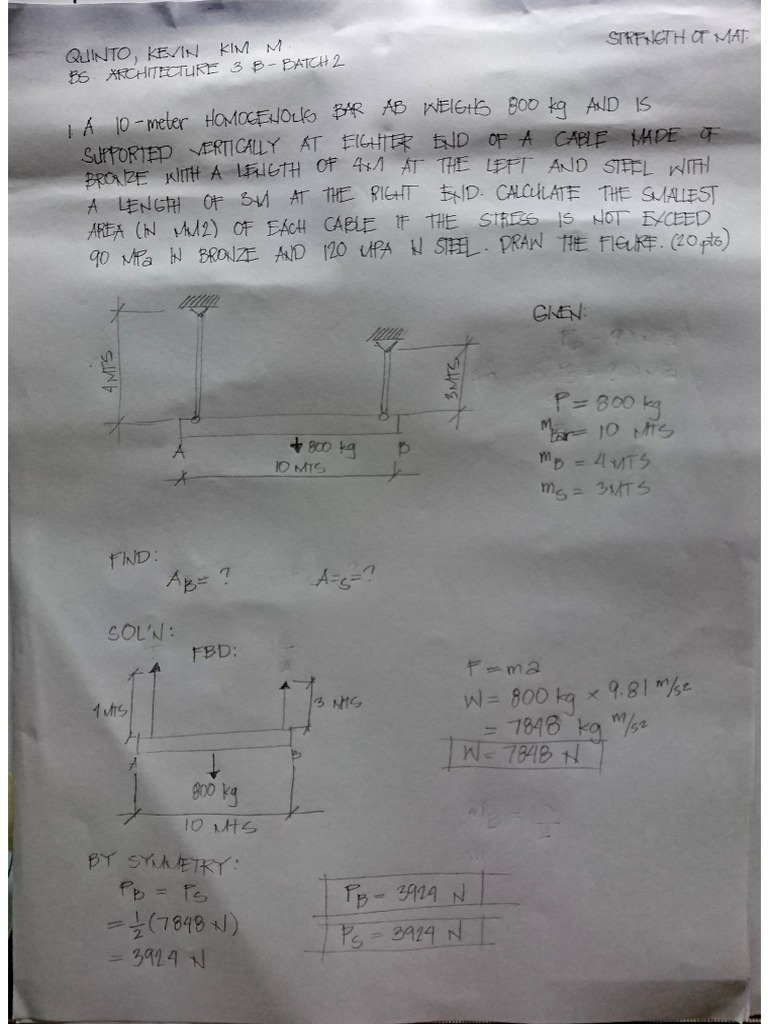 QUINTO, KEVIN KIM M.
STRENGTH OF MAT.
BS. ARCHITECTURE 3 B - BATCH 2
1. A 10-meter HOMOGENOUS BAR AB WEIGHS 800 kg AND IS
SUPPORTED VERTICALLY AT EIGHTER END OF A CABLE MADE OF
BRONZE WITH A LENGTH OF 4M AT THE LEFT AND STEEL WITH
A LENGTH OF 3M AT THE RIGHT END. CALCULATE THE SMALLEST
AREA (IN MM2) OF EACH CABLE IF THE STRESS IS NOT EXCEED
90 MPa IN BRONZE AND 120 MPA IN STEEL. DRAW THE FIGURE. (20 pts)
4 MTS
3 MTS
A
800 kg
B
10 MTS
GIVEN:
P = 800 kg
mBar = 10 MTS
mB = 4 MTS
mS = 3 MTS
FIND:
AB = ?
A=S=?
SOL'N:
FBD:
4 MTS
3 MTS
A
B
800 kg
10 MTS
F = ma
W = 800 kg × 9.81 m/s2
= 7848 kg m/s2
W = 7848 N
BY SYMMETRY:
PB = PS
= 1/2 (7848 N)
= 3924 N
PB = 3924 N
PS = 3924 N